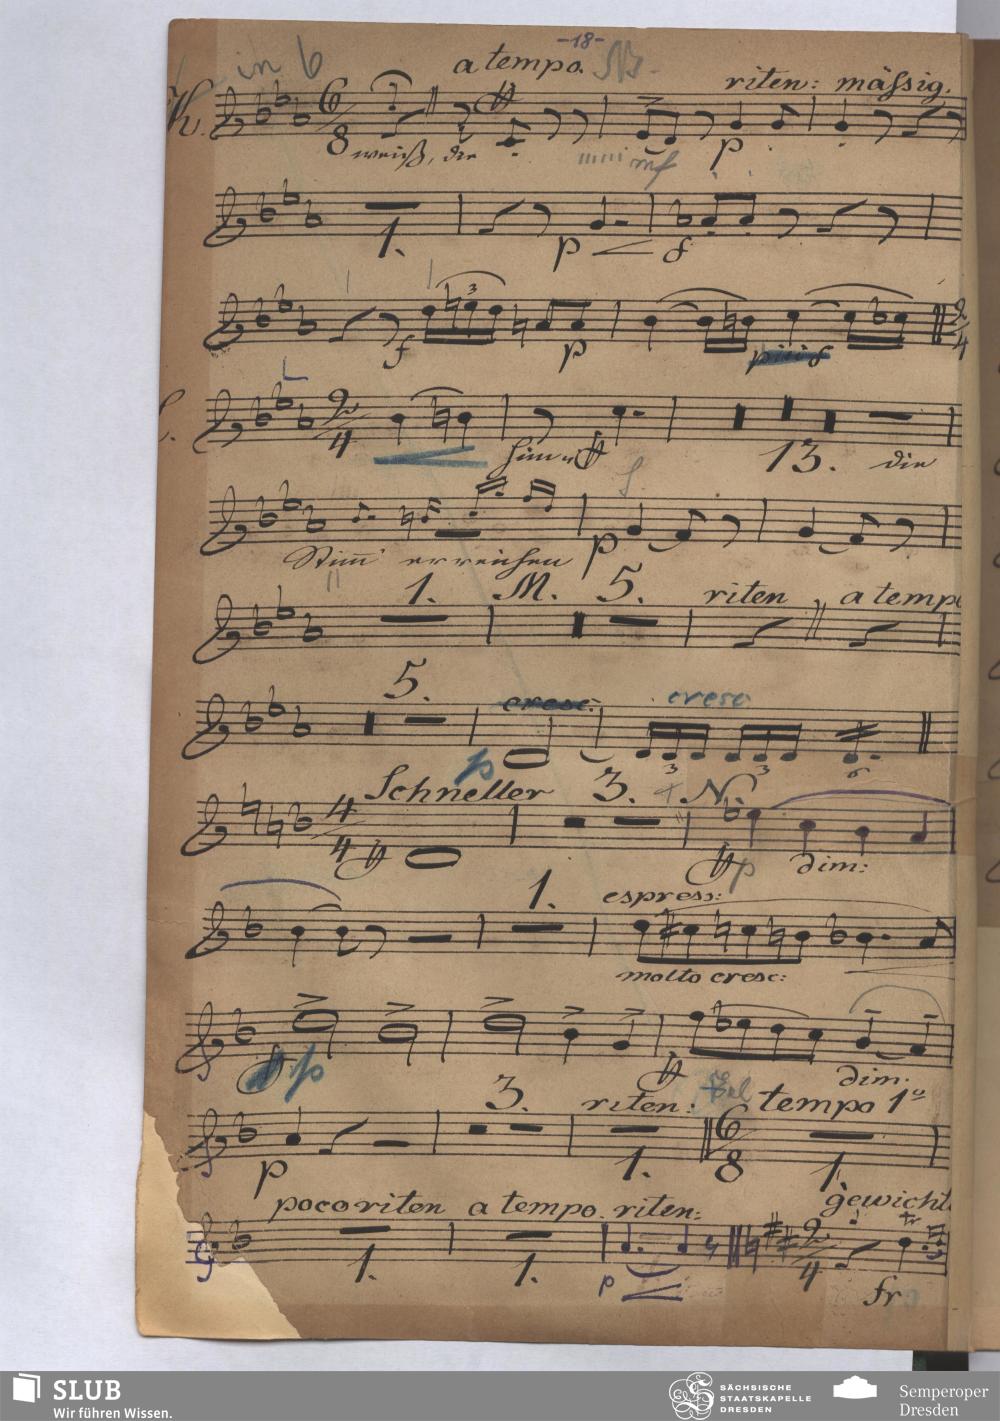 -18-
in b
a tempo.
riten: mässig.
K.
6
8
weiß, die
mf
p
1.
p
f
3
f
p
2
4
2
4
13.
die
Stim̄ erreichen
p
1. M. 5. riten a tempo
5.
cresc:
cresc
p
3
3
6
Schneller
3.
N.
4
4
p
dim:
1.
espress:
molto cresc:
p
dim:
3.
riten:
tempo 1º
p
1.
6
8
1.
poco riten a tempo riten:
gewicht
tr
1.
1.
p
2
4
fr
SLUB
Wir führen Wissen.
SÄCHSISCHE
STAATSKAPELLE
DRESDEN
Semperoper
Dresden